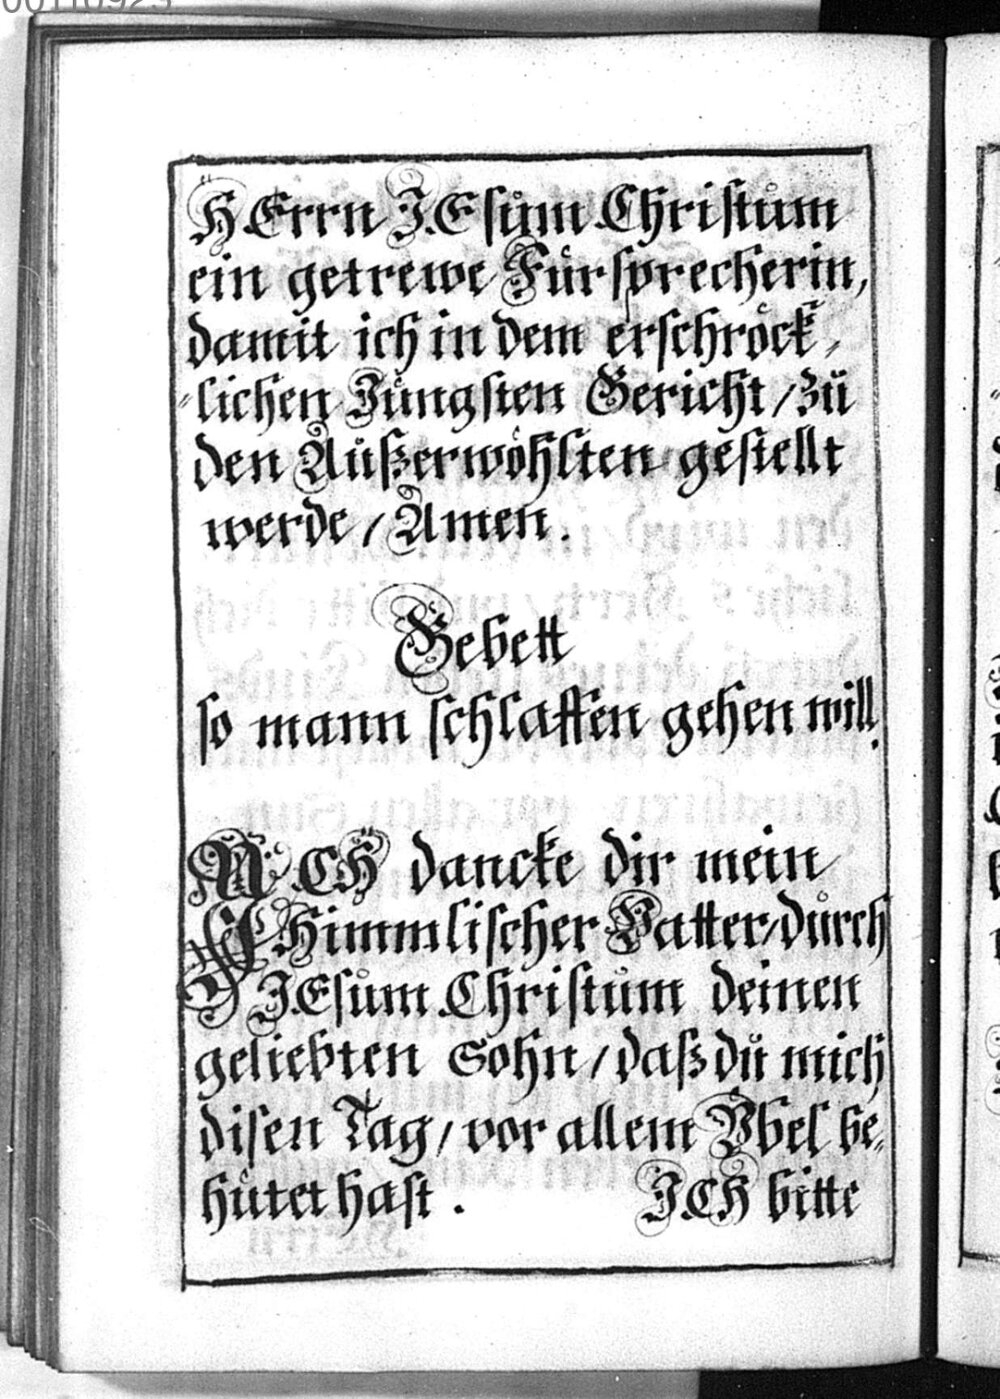 HErrn JEsům Christům
ein getrewe Fürsprecherin,
damit ich in dem erschröck-
-lichen Jüngsten Gericht / zů
den Außerwöhlten gestellt
werde / Amen.
Gebett
so mann schlaffen gehen will.
JCH dancke dir mein
Himmlischer Vatter / důrch
JEsům Christům deinen
geliebten Sohn / daß dů mich
disen Tag / vor allem Ybel be-
hütet hast. JCH bitte